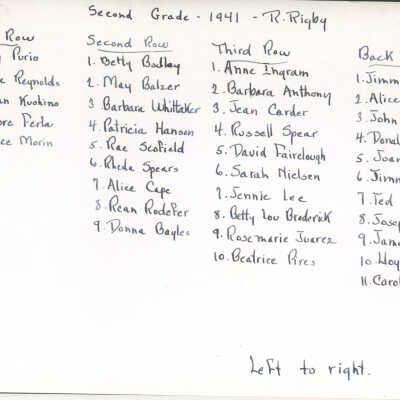 Second Grade - 1941 - R. Rigby
Row
Purio
Reynolds
Kuokino
Ferla
Morin
Second Row
1. Betty Bodley
2. May Balzer
3 Barbara Whittaker
4. Patricia Hanson
5. Rae Scofield
6. Rheda Spears
7. Alice Cape
8. Rean Rodefer
9. Donna Bayles
Third Row
1. Anne Ingram
2. Barbara Anthony
3. Jean Carder
4. Russell Spear
5. David Fairclough
6. Sarah Nielsen
7. Jennie Lee
8. Betty Lou Broderick
9. Rosemarie Juarez
10. Beatrice Pires
Back
1. Jimm
2. Alice
3. John
4. Donal
5. Joan
6. Jimm
7. Ted
8. Josep
9. Jam
10. Lloy
11. Carol
Left to right.